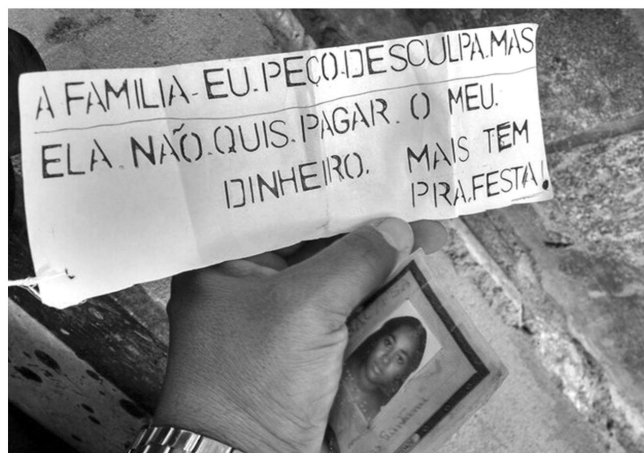 A FAMILIA. EU. PEÇO. DESCULPA. MAS
ELA. NÃO. QUIS. PAGAR. O MEU.
DINHEIRO. MAIS TEM
PRA. FESTA!